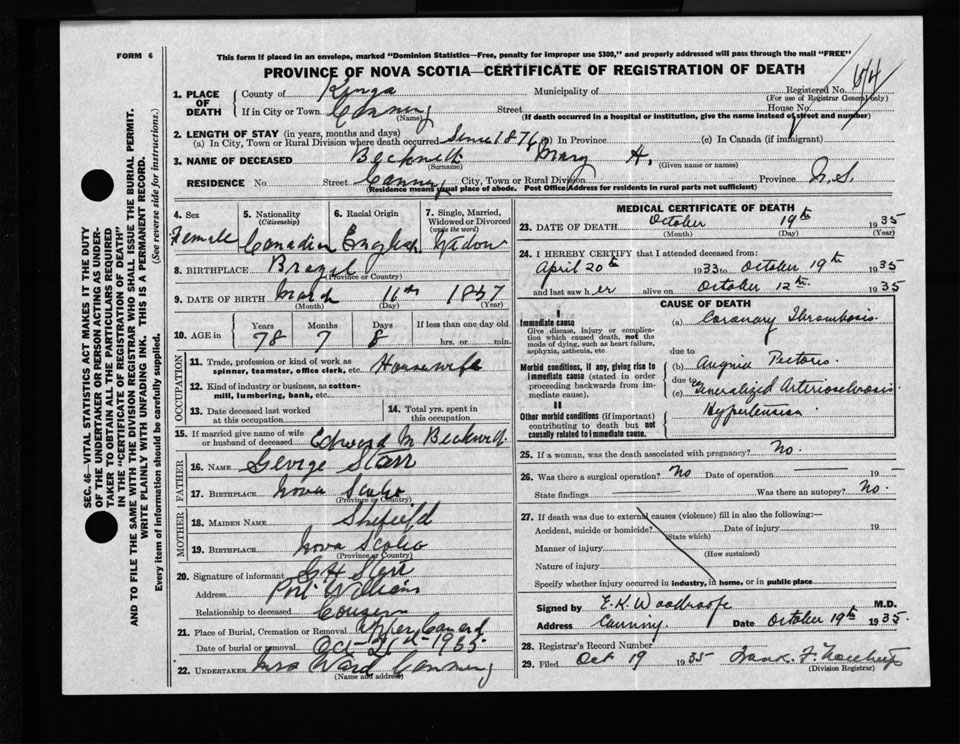 FORM 6
This form if placed in an envelope, marked "Dominion Statistics—Free, penalty for improper use $300," and properly addressed will pass through the mail "FREE"
PROVINCE OF NOVA SCOTIA—CERTIFICATE OF REGISTRATION OF DEATH
SEC. 46—VITAL STATISTICS ACT MAKES IT THE DUTY
OF THE UNDERTAKER OR PERSON ACTING AS UNDER-
TAKER TO OBTAIN ALL THE PARTICULARS REQUIRED
IN THE "CERTIFICATE OF REGISTRATION OF DEATH"
AND TO FILE THE SAME WITH THE DIVISION REGISTRAR WHO SHALL ISSUE THE BURIAL PERMIT.
WRITE PLAINLY WITH UNFADING INK. THIS IS A PERMANENT RECORD.
Every item of information should be carefully supplied. (See reverse side for instructions.)
1. PLACE OF DEATH County of Kings Municipality of Registered No.
(For use of Registrar General only)
If in City or Town Canning Street House No.
(Name) (If death occurred in a hospital or institution, give the name instead of street and number)
2. LENGTH OF STAY (in years, months and days)
(a) In City, Town or Rural Division where death occurred Since 1876 (b) In Province (c) In Canada (if immigrant)
3. NAME OF DECEASED Beckwith Mary H.
(Surname) (Given name or names)
RESIDENCE No. Street Canning City, Town or Rural Division Province N.S.
(Residence means usual place of abode. Post Office Address for residents in rural parts not sufficient)
4. Sex 5. Nationality (Citizenship) 6. Racial Origin 7. Single, Married, Widowed or Divorced (write the word)
Female Canadian English Widow
8. BIRTHPLACE Brazil
(Province or Country)
9. DATE OF BIRTH March 11th 1857
(Month) (Day) (Year)
10. AGE in Years Months Days If less than one day old
78 7 8 hrs. or min.
OCCUPATION
11. Trade, profession or kind of work as
spinner, teamster, office clerk, etc. Housewife
12. Kind of industry or business, as cotton-
mill, lumbering, bank, etc.
13. Date deceased last worked
at this occupation
14. Total yrs. spent in
this occupation
15. If married give name of wife
or husband of deceased Edward M Beckwith
FATHER
16. NAME George Starr
17. BIRTHPLACE Nova Scotia
(Province or Country)
MOTHER
18. MAIDEN NAME Shefield
19. BIRTHPLACE Nova Scotia
(Province or Country)
20. Signature of informant Starr
Address Port Williams
Relationship to deceased Cousin
21. Place of Burial, Cremation or Removal Upper Canard
Date of burial or removal Oct 1935
22. UNDERTAKER Ward Canning
(Name and address)
MEDICAL CERTIFICATE OF DEATH
23. DATE OF DEATH October 19th 1935
(Month) (Day) (Year)
24. I HEREBY CERTIFY that I attended deceased from:
April 20th 1933 to October 19th 1935
and last saw her alive on October 12th 1935
CAUSE OF DEATH
I
Immediate cause
Give disease, injury or complica-
tion which caused death, not the
mode of dying, such as heart failure,
asphyxia, asthenia, etc
(a) Coronary Thrombosis
due to
Morbid conditions, if any, giving rise to
immediate cause (stated in order
proceeding backwards from im-
mediate cause).
(b) Angina Pectoris
due to
(c) Generalized Arteriosclerosis
II
Other morbid conditions (if important)
contributing to death but not
causally related to immediate cause.
Hypertension
25. If a woman, was the death associated with pregnancy? No.
26. Was there a surgical operation? No Date of operation 19
State findings Was there an autopsy? No.
27. If death was due to external causes (violence) fill in also the following:—
Accident, suicide or homicide? Date of injury 19
(State which)
Manner of injury
(How sustained)
Nature of injury
Specify whether injury occurred in industry, in home, or in public place
Signed by E.K. Woodroofe M.D.
Address Canning Date October 19th 1935
28. Registrar's Record Number
29. Filed Oct 19 1935 Frank F.
(Division Registrar)